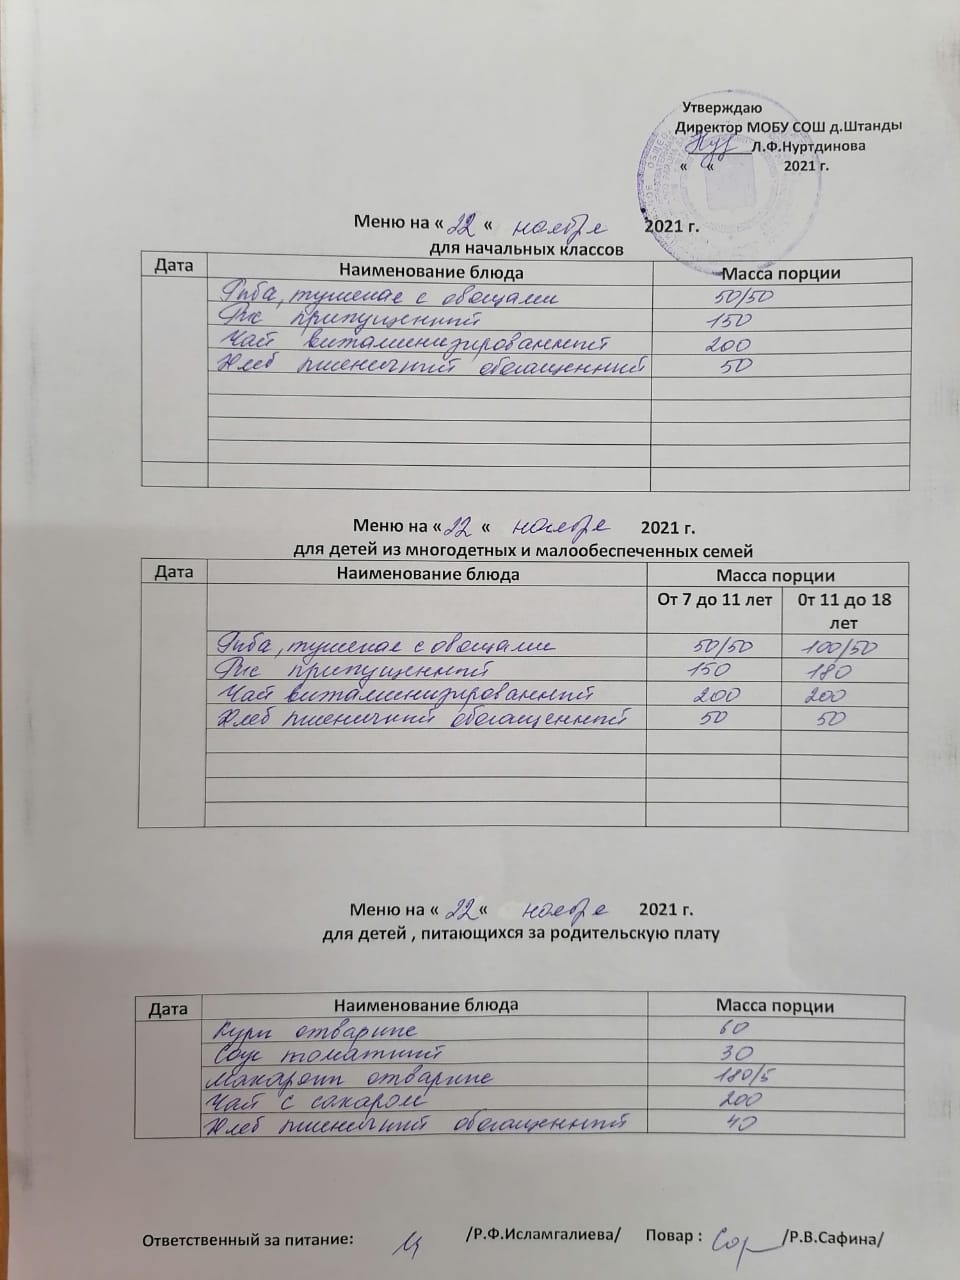 Утверждаю
Директор МОБУ СОШ д.Штанды
Л.Ф.Нуртдинова
« « 2021 г.
Меню на « 22 « ноября 2021 г.
для начальных классов
Дата Наименование блюда Масса порции
Рыба, тушеная с овощами 50/50
Рис припущенный 150
Чай витаминизированный 200
Хлеб пшеничный обогащенный 50
Меню на « 22 « ноября 2021 г.
для детей из многодетных и малообеспеченных семей
Дата Наименование блюда Масса порции
От 7 до 11 лет 0т 11 до 18
лет
Рыба, тушеная с овощами 50/50 100/50
Рис припущенный 150 180
Чай витаминизированный 200 200
Хлеб пшеничный обогащенный 50 50
Меню на « 22 « ноября 2021 г.
для детей , питающихся за родительскую плату
Дата Наименование блюда Масса порции
Куры отварные 60
Соус томатный 30
Макароны отварные 180/5
Чай с сахаром 200
Хлеб пшеничный обогащенный 40
Ответственный за питание: /Р.Ф.Исламгалиева/ Повар : /Р.В.Сафина/